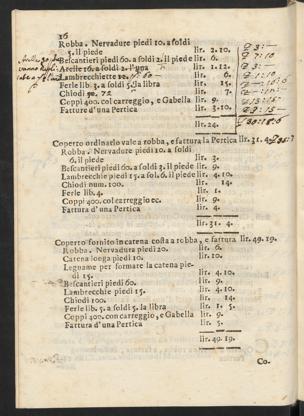 16
Robba. Nervadure piedi 10. a soldi
5. il piede lir. 2. 10.
Bescantieri piedi 60. a soldi 2. il piede lir. 6.
Arelle 16. a soldi 2. l'una lir. 1. 12.
Lambrecchiette lir. 6.
Ferle lib. 3. a soldi 5. la libra lir. 15.
Chiodi lir. 7.
Coppi 400. col carreggio, e Gabella lir. 9.
Fatture d'una Pertica lir. 3. 10.
lir. 24.
Coperto ordinario vale a robba, e fattura la Pertica lir. 31. 4.
Robba. Nervadure piedi 10. a soldi
6. il piede lir. 3.
Bescantieri piedi 60. a soldi 3. il piede lir. 9.
Lambrecchie piedi 15. a sol. 6. il piede lir. 4. 10.
Chiodi num. 100. lir. 14.
Ferle lib. 4. lir. 1.
Coppi 400. col carreggio ec. lir. 9.
Fattura d'una Pertica lir. 4.
lir. 31. 4.
Coperto fornito in catena costa a robba, e fattura lir. 49. 19.
Robba. Nervadura piedi 20. lir. 6.
Catena longa piedi 10. lir. 10.
Legname per formare la catena pie-
di 15. lir. 4. 10.
Bescantieri piedi 60. lir. 9.
Lambrecchie piedi 15. lir. 4. 10.
Chiodi 100. lir. 14.
Ferle lib. 5. a soldi 5. la libra lir. 1. 5.
Coppi 400. con carreggio, e Gabella lir. 9.
Fattura d'una Pertica lir. 5.
lir. 49. 19.
Co.